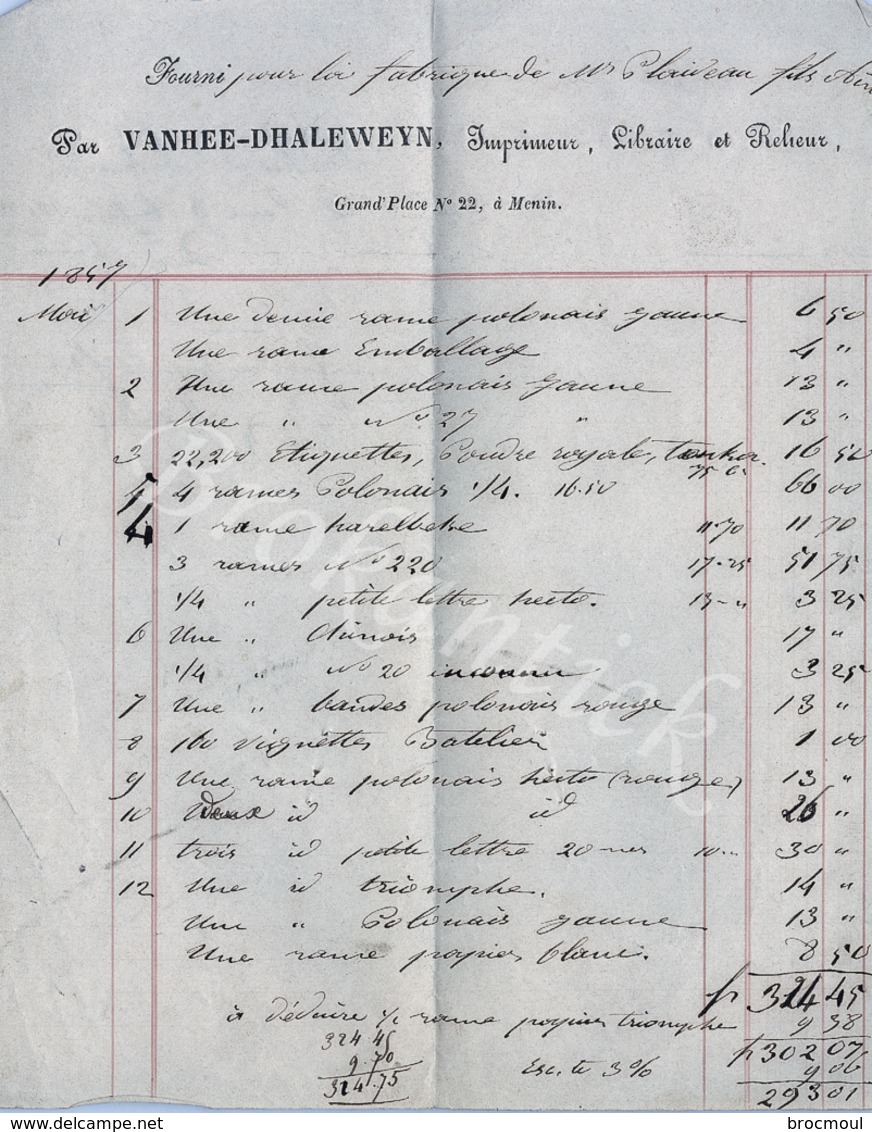 Fourni pour la fabrique de Mr Plaideau fils Ain
Par VANHEE-DHALEWEYN, Imprimeur, Libraire et Relieur,
Grand'Place No 22, à Menin.
1857
Mai 1 Une demie rame polonais jaune 6 50
Une rame Emballage 4 "
2 Une rame polonais jaune 13 "
Une " No 27 " 13 "
3 22,200 Etiquettes, Poudre royale, tonka. 75 c. 16 50
5 4 rames Polonais 1/4. 16.50 66 00
4 1 rame harelbeke 11.70 11 70
3 rames No 220 17-25 51 75
1/4 " petite lettre hecto. 13-" 3 25
6 Une " Chinois 17 "
1/4 " No 20 3 25
7 Une " bandes polonais rouge 13 "
8 160 vignettes Batelier 1 00
9 Une rame polonais hecto (rouge) 13 "
10 Deux id id 26 "
11 trois id petite lettre 20 10 " 30 "
12 Une id triomphe. 14 "
Une " Polonais jaune 13 "
Une rame papier blanc. 8 50
fr 324 45
à Déduire rame papier triomphe 9 38
324 45
fr 302 07
9.70
Esc. te 3% 9 06
314.75
293 01
Brokantick
delcampe.net
brocmoul